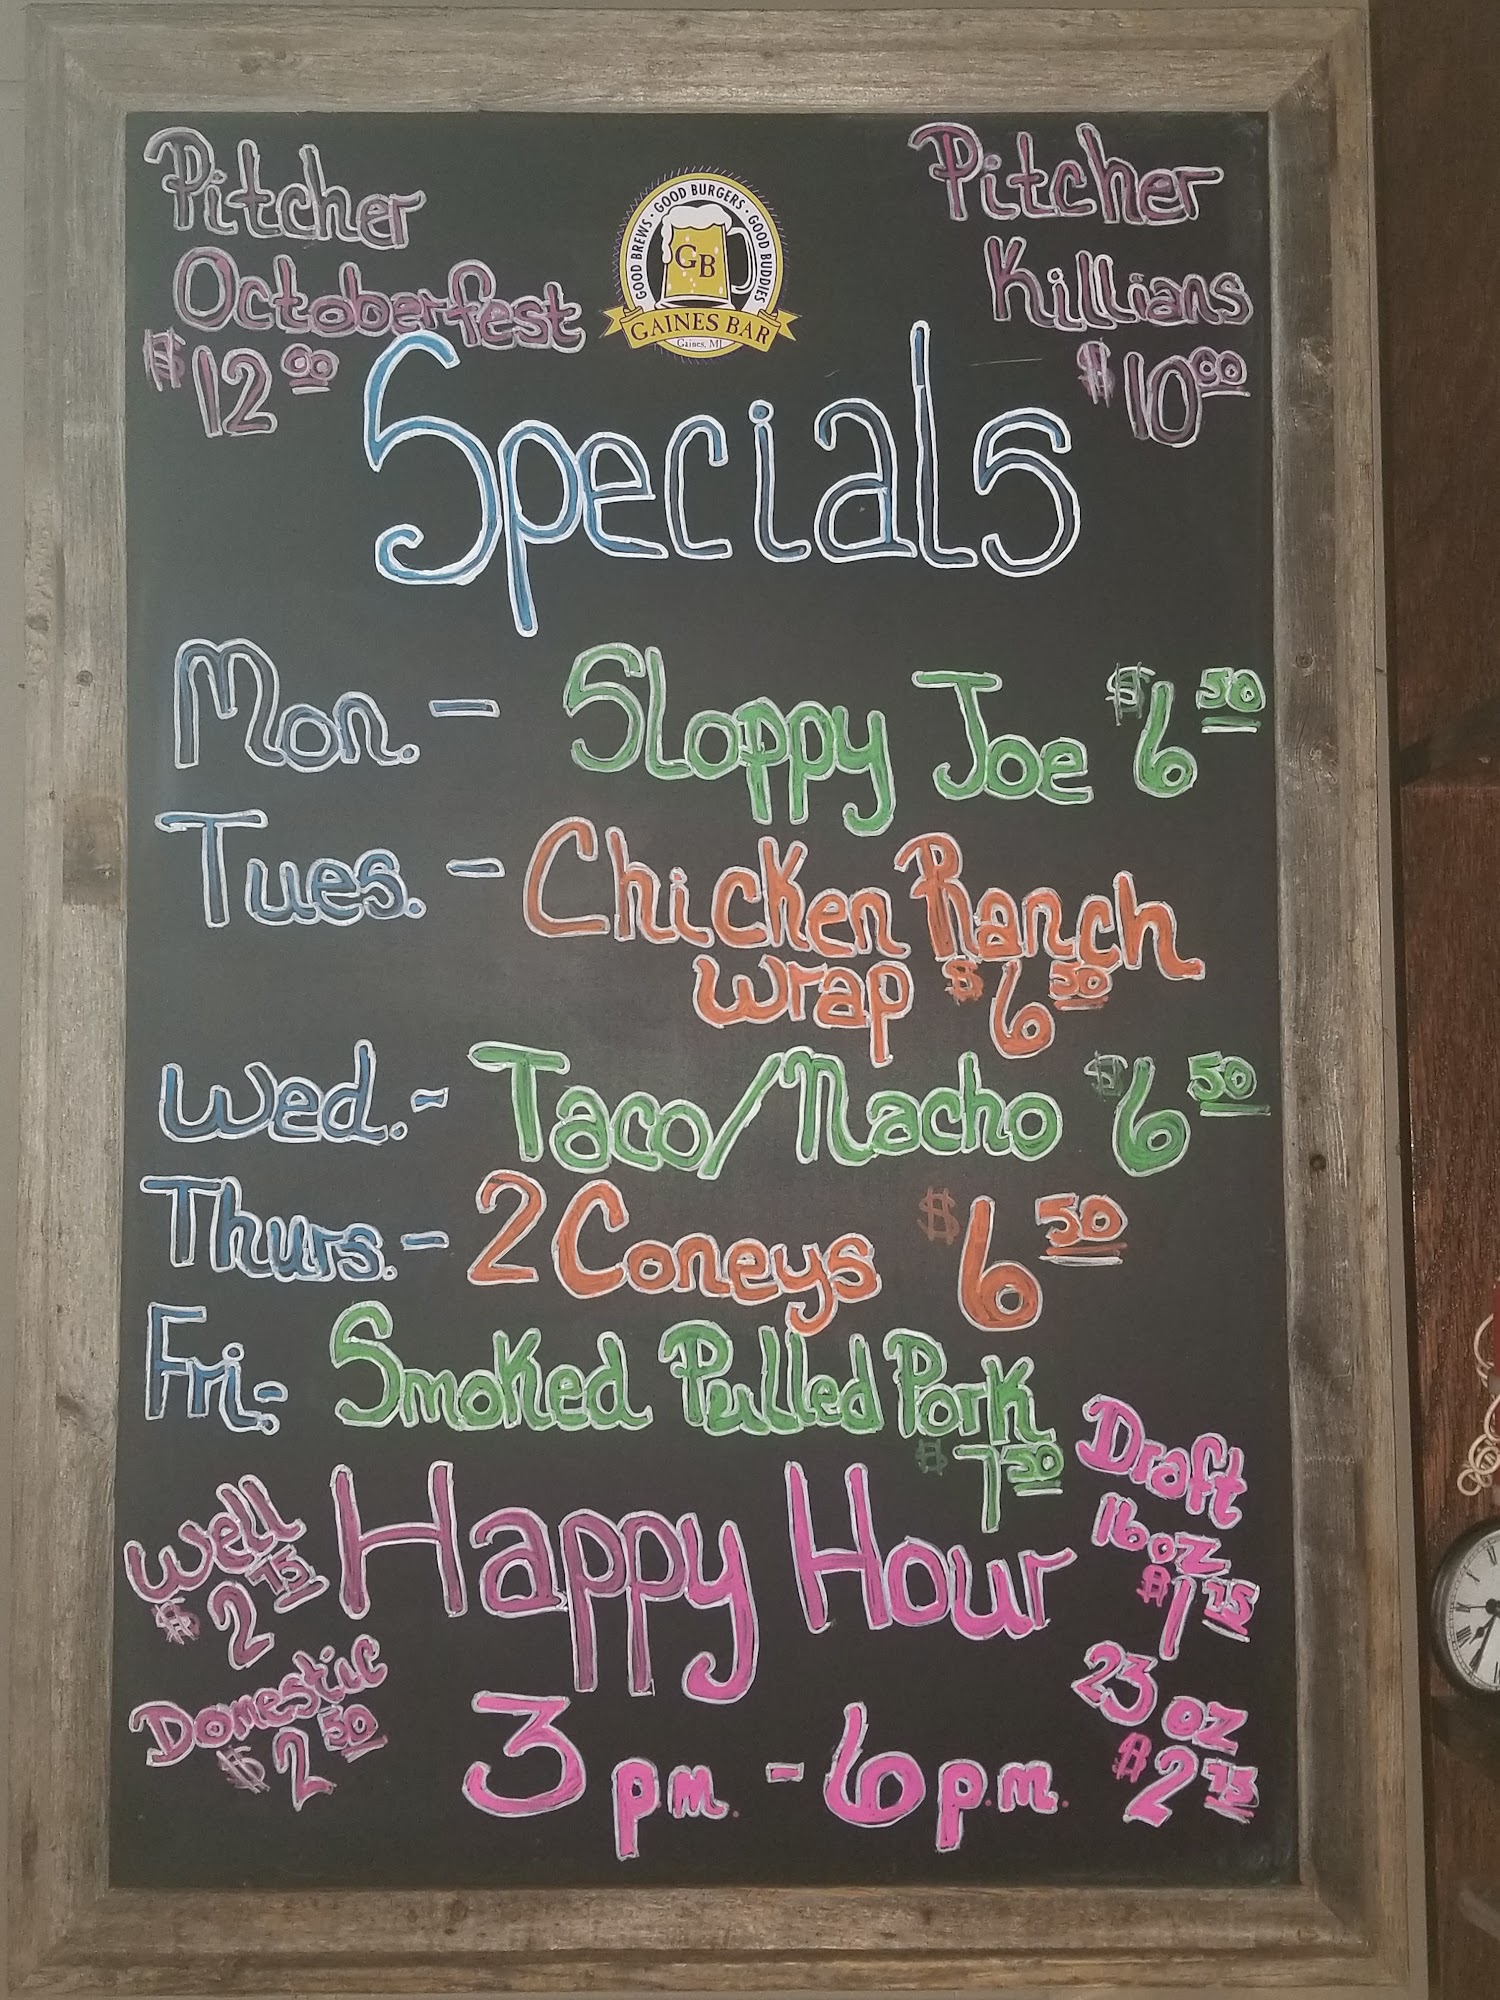 Pitcher
Octoberfest
$12.00
GOOD BREWS · GOOD BURGERS · GOOD BUDDIES
GB
GAINES BAR
Gaines, MI
Pitcher
Killians
$10.00
Specials
Mon. - Sloppy Joe $6.50
Tues. - Chicken Ranch
Wrap $6.50
Wed. - Taco/Nacho $6.50
Thurs. - 2 Coneys $6.50
Fri. - Smoked Pulled Pork
$7.50
Well
$2.75
Domestic
$2.50
Happy Hour
3 p.m. - 6 p.m.
Draft
16 oz
$1.75
23 oz
$2.75